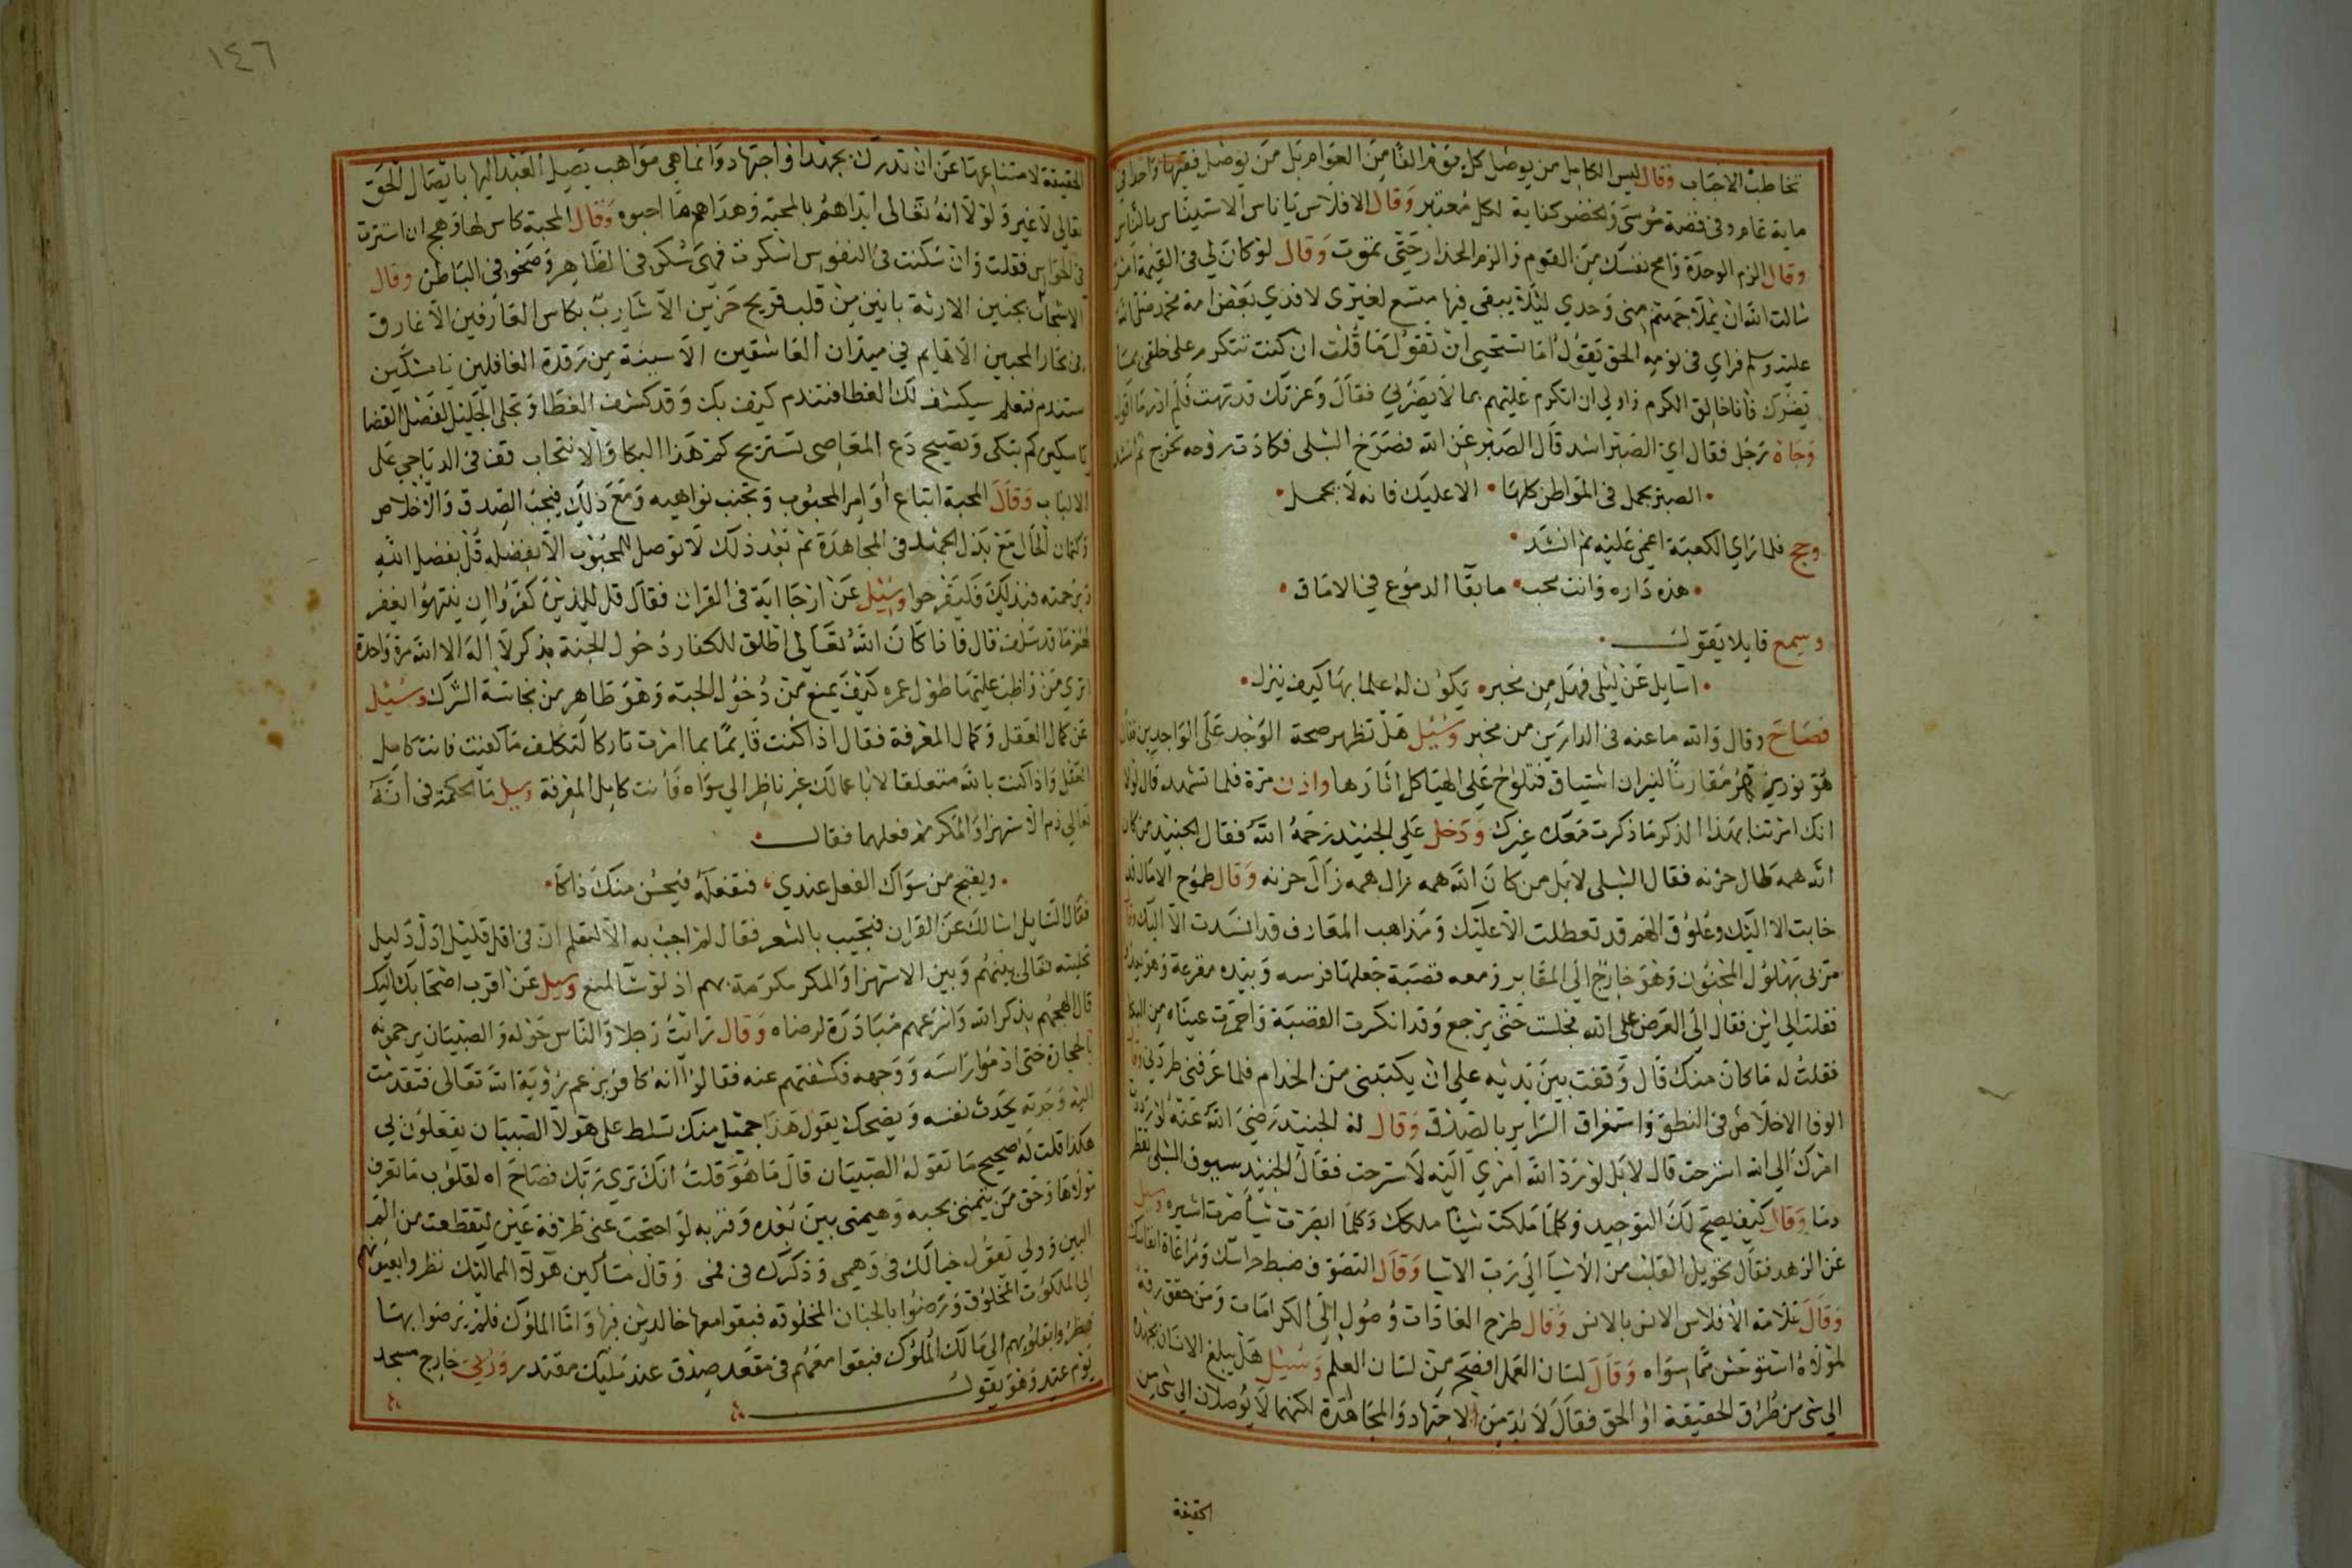 تخاطب الاحباب وقال ليس الكامل من يوصل كل يوم الفا من العوام بل من يوصل فقيها واحدا في
ماية عام وفي قصة موسى والخضر كفاية لكل معتبر وقال الافلاس يا ناس الاستيناس بالناس
وقال الزم الوحدة وامح نفسك من القوم والزم الجدار حتى تموت وقال لو كان لي في القيمة امر
سالت الله ان يملا جهنم مني وحدي ليلا يبقى فيها متسع لغيري لافدي بعض امة محمد صلى الله
عليه وسلم فراي في نومه الحق يقول اما تستحيي ان تقول ما قلت ان كنت تتكرم على خلقي بما
يضرك فانا خالق الكرم واولى ان اتكرم عليهم بما لا يضرني فقال وعزتك قد تهت فلم ادر ما اقول
وجاه رجل فقال اي الصبر اشد قال الصبر عن الله فصرخ الشبلي فكادت روحه تخرج ثم انشد
الصبر يجمل في المواطن كلها • الا عليك فانه لا يجمل
وحج فلما راي الكعبة اغمي عليه ثم انشد
هذه داره وانت محب • ما بقا الدموع في الاماق
وسمع قايلا يقول
اسايل عن ليلى فهل من مخبر • يكون له علم بها كيف ينزل
فصاح وقال والله ما عنه في الدارين من مخبر وسئيل هل تظهر صحة الوجد على الواجدين فقال
هو نور يزهر مقارنا لنيران اشتياق فتلوح على الهياكل اثارها واذن مرة فلما تشهد قال لولا
انك امرتنا بهذا الذكر ما ذكرت معك غيرك ودخل على الجنيد رحمه الله فقال الجنيد من كان
الله همه طال حزنه فقال الشبلي لا بل من كان الله همه زال همه زال حزنه وقال طموح الامال قد
خابت الا اليك وعلوق الهم قد تعطلت الا عليك ومذاهب المعارف قد انسدت الا اليك وقال
مر بي بهلول المجنون وهو خارج الى المقابر ومعه قصبة جعلها فرسه وبيده مقرعة وهو يعدو
فقلت الى اين فقال الى العرض على الله فجلست حتى يرجع وقد انكسرت القصبة واحمرت عيناه من البكا
فقلت له ما كان منك قال وقفت بين يديه على ان يكتبني من الخدام فلما عرفني طردني وقال
الوفا الاخلاص في النطق واستغراق السراير بالصدق وقال له الجنيد رضي الله عنه لو رددت
امرك الى الله استرحت قال لا بل لو رد الله امري اليه لاسترحت فقال الجنيد سيوف الشبلي تقطر
دما وقال كيف يصح لك التوحيد وكلما ملكت شيئا ملكك وكلما ابصرت شيا صرت اسيره وسيل
عن الزهد فقال تحويل القلب من الاشيا الى رب الاشيا وقال التصوف ضبط حواسك ومراعاة انفاسك
وقال علامة الافلاس الانس بالانس وقال طرح العادات وصول الى الكرامات ومن حقق رقه
لمولاه استوحش مما سواه وقال لسان العمل افصح من لسان العلم وسئيل هل يبلغ الانسان بجهده
الى شي من طرق الحقيقة او الحق فقال لا بد من الاجتهاد والمجاهدة لكنهما لا يوصلان الى شي من
الحقيقة
١٤٦
الحقيقة لامتناعها عن ان تدرك بجهد او اجتهاد وانما هي مواهب يصل العبد اليها باتصال الحق
تعالى لا غير ولولا انه تعالى ابتداهم بالمحبة وهداهم ما احبوه وقال المحبة كاس لها وهج ان استترت
في الحواس فقلت وان سكنت في النفوس اسكرت فهي سكر في الظاهر وصحو في الباطن وقال
بانين من قلب قريح حزين الا شارب بكاس العارفين الا غارق
في بحار المحبين الا هايم في ميدان العاشقين من رقدة الغافلين يا مسكين
ستقدم فتعلم سيكشف لك الغطا فتندم كيف بك وقد كشف الغطا وتجلى الجليل لفصل القضا
يا مسكين كم تبكي وتصيح دع المعاصي تستريح كم هذا البكا والانتحاب قف في الدياجي على
الالباب وقال المحبة اتباع اوامر المحبوب وتجنب نواهيه ومع ذلك فيجب الصدق والاخلاص
وكتمان الحال مع بذل الجهد في المجاهدة ثم بعد ذلك لا توصل للمحبوب الا بفضله قل بفضل الله
وبرحمته فبذلك فليفرحوا وسئيل عن ارجا اية في القران فقال قل للذين كفروا ان ينتهوا يغفر
لهم ما قد سلف قال فاذا كان الله تعالى اطلق للكفار دخول الجنة بذكر لا اله الا الله مرة واحدة
اترى من واظب عليها طول عمره كيف يمنع من دخول الجنة وهو طاهر من نجاسة الشرك وسئيل
عن كمال العقل وكمال المعرفة فقال اذا كنت قايما بما امرت تاركا لتكلف ما كفيت فانت كامل
العقل واذا كنت بالله متعلقا لا باعمالك غير ناظر الى سواه فانت كامل المعرفة وسيل ما الحكمة في انه
تعالى ذم الاستهزا والمكر ثم فعلهما فقال
ويقبح من سواك الفعل عندي، فتفعله فيحسن منك ذاكا
فقال السايل اسالك عن القران فتجيب بالشعر فقال لم اجب به الا لتعلم ان في اقل قليل ادل دليل
تخليته تعالى بينهم وبين الاستهزا والمكر مكرمة بهم اذ لو شا لمنع وسيل عن اقرب اصحابك اليك
قال الهجهم بذكر الله واسرعهم مبادرة لرضاه وقال رايت رجلا والناس حوله والصبيان يرجمونه
بالحجارة حتى ادموا راسه ووجهه فكشفتهم عنه فقالوا انه كافر يزعم رؤية الله تعالى فتقدمت
اليه وجدته يحدث نفسه ويضحك يقول هذا جميل منك تسلط على هولا الصبيان يفعلون بي
هكذا قلت له صحيح ما تقوله الصبيان قال ما هو قلت انك ترى ربك فصاح اه لقلوب ما تعرف
مولاها وحق من يتمني بحبه وهيمني بين بعده وقربه لو احتجب عني طرفة عين لتقطعت من الم
البين وولى يقول خيالك في وهمي وذكرك في فمي وقال مساكين هولا المماليك نظروا بعيونهم
الى الملكوت المخلوق ورضوا بالجنان المخلوقه فبقوا معها خالدين فيها واما الملوك فلم يرضوا بها
نظروا بقلوبهم الى مالك الملوك فبقوا معهم في مقعد صدق عند مليك مقتدر وروي خارج مسجد
يوم عيد وهو يقول